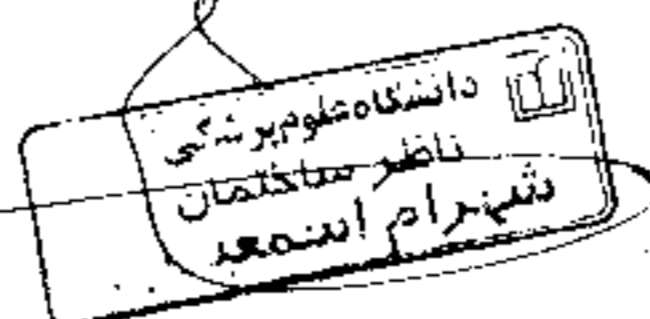 دانشگاه علوم پزشکی
ناظر ساختمان
شهرام